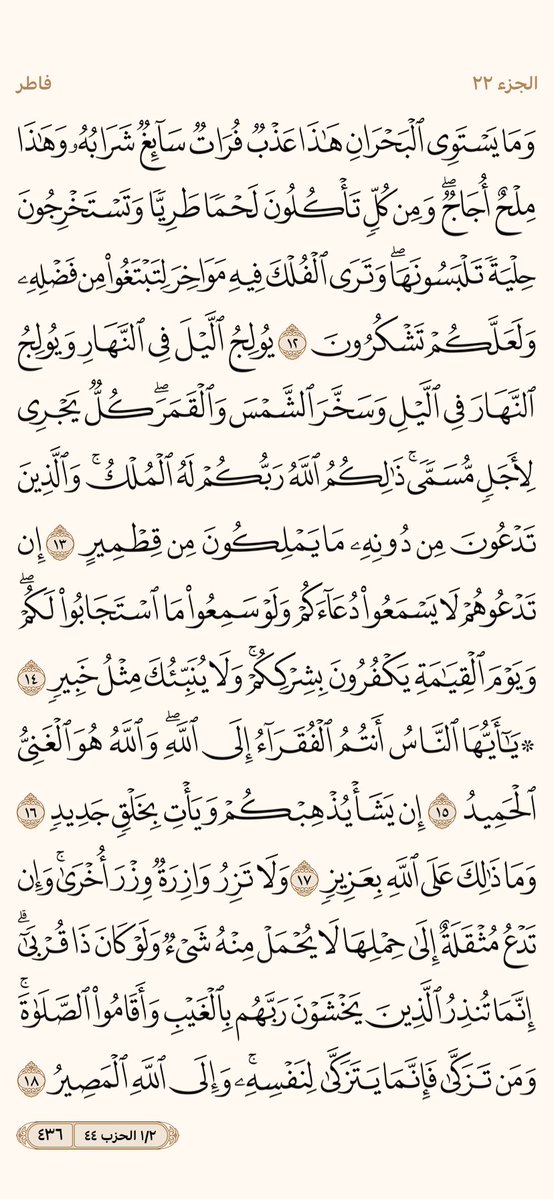 الجزء ٢٢
فاطر
وَمَا يَسْتَوِي ٱلْبَحْرَانِ هَٰذَا عَذْبٌ فُرَاتٌ سَآئِغٌ شَرَابُهُۥ وَهَٰذَا
مِلْحٌ أُجَاجٌۖ وَمِن كُلٍّ تَأْكُلُونَ لَحْمًا طَرِيًّا وَتَسْتَخْرِجُونَ
حِلْيَةً تَلْبَسُونَهَاۖ وَتَرَى ٱلْفُلْكَ فِيهِ مَوَاخِرَ لِتَبْتَغُوا۟ مِن فَضْلِهِۦ
وَلَعَلَّكُمْ تَشْكُرُونَ ١٢ يُولِجُ ٱلَّيْلَ فِى ٱلنَّهَارِ وَيُولِجُ
ٱلنَّهَارَ فِى ٱلَّيْلِ وَسَخَّرَ ٱلشَّمْسَ وَٱلْقَمَرَۖ كُلٌّ يَجْرِى
لِأَجَلٍ مُّسَمًّىۚ ذَٰلِكُمُ ٱللَّهُ رَبُّكُمْ لَهُ ٱلْمُلْكُۚ وَٱلَّذِينَ
تَدْعُونَ مِن دُونِهِۦ مَا يَمْلِكُونَ مِن قِطْمِيرٍ ١٣ إِن
تَدْعُوهُمْ لَا يَسْمَعُوا۟ دُعَآءَكُمْ وَلَوْ سَمِعُوا۟ مَا ٱسْتَجَابُوا۟ لَكُمْۖ
وَيَوْمَ ٱلْقِيَٰمَةِ يَكْفُرُونَ بِشِرْكِكُمْۚ وَلَا يُنَبِّئُكَ مِثْلُ خَبِيرٍ ١٤
۞ يَٰٓأَيُّهَا ٱلنَّاسُ أَنتُمُ ٱلْفُقَرَآءُ إِلَى ٱللَّهِۖ وَٱللَّهُ هُوَ ٱلْغَنِىُّ
ٱلْحَمِيدُ ١٥ إِن يَشَأْ يُذْهِبْكُمْ وَيَأْتِ بِخَلْقٍ جَدِيدٍ ١٦
وَمَا ذَٰلِكَ عَلَى ٱللَّهِ بِعَزِيزٍ ١٧ وَلَا تَزِرُ وَازِرَةٌ وِزْرَ أُخْرَىٰۚ وَإِن
تَدْعُ مُثْقَلَةٌ إِلَىٰ حِمْلِهَا لَا يُحْمَلْ مِنْهُ شَىْءٌ وَلَوْ كَانَ ذَا قُرْبَىٰٓۗ
إِنَّمَا تُنذِرُ ٱلَّذِينَ يَخْشَوْنَ رَبَّهُم بِٱلْغَيْبِ وَأَقَامُوا۟ ٱلصَّلَوٰةَۚ
وَمَن تَزَكَّىٰ فَإِنَّمَا يَتَزَكَّىٰ لِنَفْسِهِۦۚ وَإِلَى ٱللَّهِ ٱلْمَصِيرُ ١٨
١/٢ الحزب ٤٤
٤٣٦